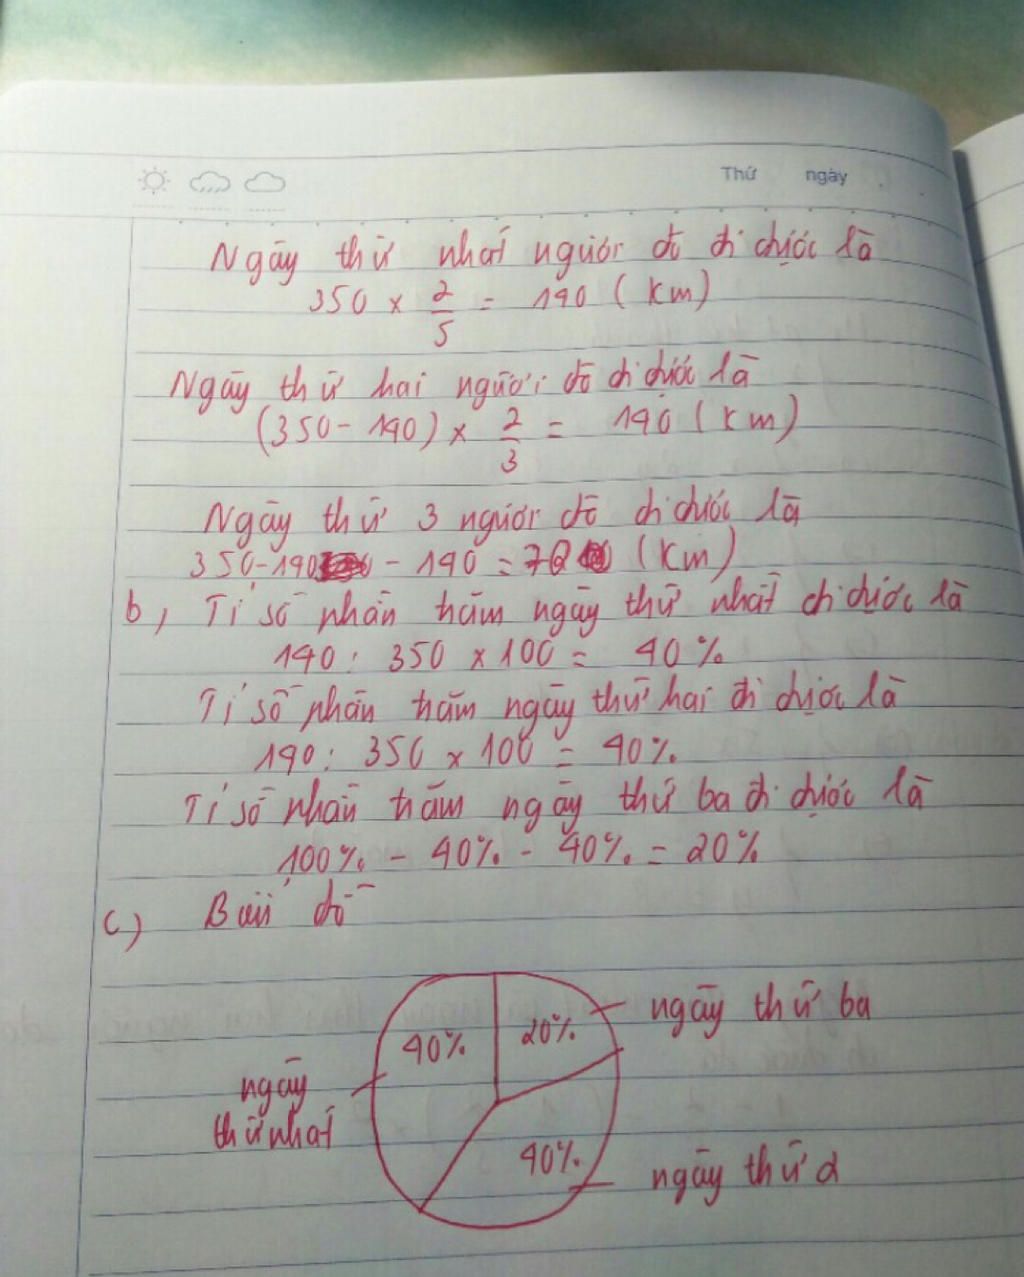 Thứ ngày
Ngày thứ nhất người đó đi được là
350 × 2/5 = 140 (km)
Ngày thứ hai người đó đi được là
(350 - 140) × 2/3 = 140 (km)
Ngày thứ 3 người đó đi được là
350 - 140 - 140 = 70 (km)
b, Tỉ số phần trăm ngày thứ nhất đi được là
140 : 350 × 100 = 40%
Tỉ số phần trăm ngày thứ hai đi được là
140 : 350 × 100 = 40%
Tỉ số phần trăm ngày thứ ba đi được là
100% - 40% - 40% = 20%
c) Biểu đồ
40% 20% ngày thứ ba
ngày
thứ nhất
40% ngày thứ 2